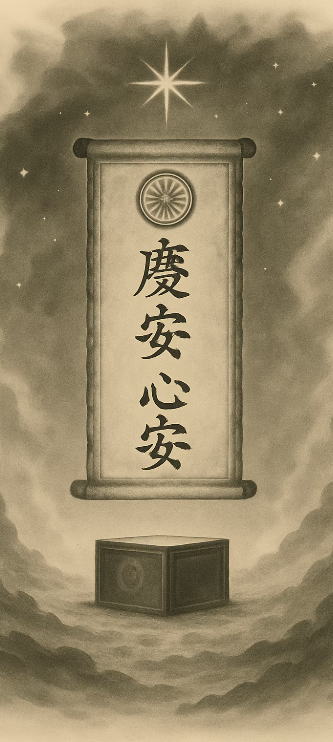 慶安心安